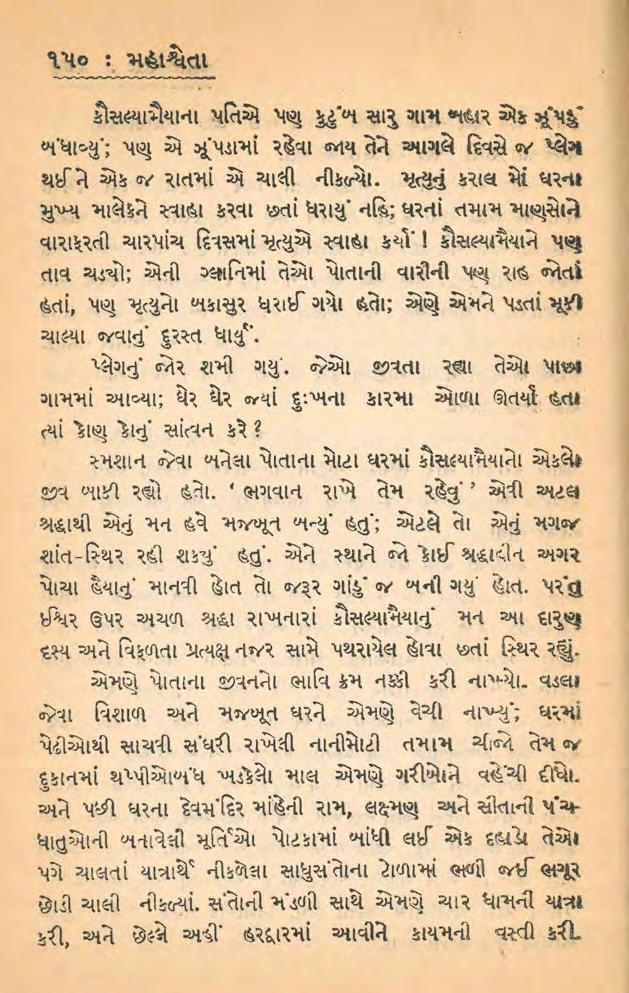 ૧૫૦ : મહાશ્વેતા
કૌસલ્યામૈયાના પતિએ પણ કુટુંબ સારુ ગામ બહાર એક ઝૂંપડું
બંધાવ્યું; પણ એ ઝૂંપડામાં રહેવા જાય તેને આગલે દિવસે જ પ્લેગ
થઈ ને એક જ રાતમાં એ ચાલી નીકળ્યો. મૃત્યુનું કરાલ મોં ઘરના
મુખ્ય માલેકને સ્વાહા કરવા છતાં ધરાયું નહિ; ઘરનાં તમામ માણસોને
વારાફરતી ચારપાંચ દિવસમાં મૃત્યુએ સ્વાહા કર્યાં ! કૌસલ્યામૈયાને પણ
તાવ ચડ્યો; એની ગ્લાનિમાં તેઓ પોતાની વારીની પણ રાહ જોતાં
હતાં, પણ મૃત્યુનો બકાસુર ધરાઈ ગયો હતો; એણે એમને પડતાં મૂકી
ચાલ્યા જવાનું દુરસ્ત ધાર્યું.
પ્લેગનું જોર શમી ગયું. જેઓ જીવતા રહ્યા તેઓ પાછા
ગામમાં આવ્યા; ઘેર ઘેર જ્યાં દુઃખના કારમા ઓળા ઊતર્યા હતા
ત્યાં કોણ કોનું સાંત્વન કરે ?
સ્મશાન જેવા બનેલા પોતાના મોટા ઘરમાં કૌસલ્યામૈયાનો એકલો
જીવ બાકી રહ્યો હતો. ‘ ભગવાન રાખે તેમ રહેવું ’ એવી અટલ
શ્રદ્ધાથી એનું મન હવે મજબૂત બન્યું હતું; એટલે તો એનું મગજ
શાંત-સ્થિર રહી શક્યું હતું. એને સ્થાને જો કોઈ શ્રદ્ધાહીન અગર
પોચા હૈયાનું માનવી હોત તો જરૂર ગાંડું જ બની ગયું હોત. પરંતુ
ઈશ્વર ઉપર અચળ શ્રદ્ધા રાખનારાં કૌસલ્યામૈયાનું મન આ દારુણ
દૃસ્ય અને વિફળતા પ્રત્યક્ષ નજર સામે પથરાયેલ હોવા છતાં સ્થિર રહ્યું.
એમણે પોતાના જીવનનો ભાવિ ક્રમ નક્કી કરી નાખ્યો. વડલા
જેવા વિશાળ અને મજબૂત ઘરને એમણે વેચી નાખ્યું; ઘરમાં
પેઢીઓથી સાચવી સંઘરી રાખેલી નાનીમોટી તમામ ચીજો તેમ જ
દુકાનમાં થપ્પીઓબંધ ખડકેલો માલ એમણે ગરીબોને વહેંચી દીધો.
અને પછી ઘરના દેવમંદિર માંહેની રામ, લક્ષ્મણ અને સીતાની પંચ-
ધાતુઓની બનાવેલી મૂર્તિઓ પોટકામાં બાંધી લઈ એક દહાડો તેઓ
પગે ચાલતાં યાત્રાર્થે નીકળેલા સાધુસંતોના ટોળામાં ભળી જઈ ભગૂર
છોડી ચાલી નીકળ્યાં. સંતોની મંડળી સાથે એમણે ચાર ધામની યાત્રા
કરી, અને છેલ્લે અહીં હરદ્વારમાં આવીને કાયમની વસ્તી કરી.